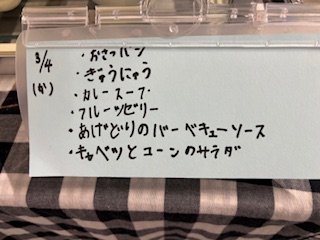 3/4
(か)
・おさつパン
・ぎゅうにゅう
・カレースープ
・フルーツゼリー
・あげどりのバーベキューソース
・キャベツとコーンのサラダ